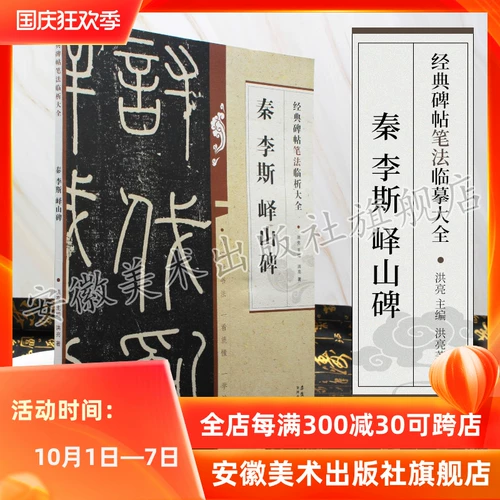 国庆狂欢季
经典碑帖笔法临析大全
秦 李斯 峄山碑
经典碑帖笔法临析大全
秦 李斯 峄山碑
经典碑帖笔法临摹大全
秦 李斯 峄山碑
洪亮 主编 洪亮
安徽美术出版社旗舰店
活动时间：
10月1日—7日
全店每满300减30可跨店
安徽美术出版社旗舰店